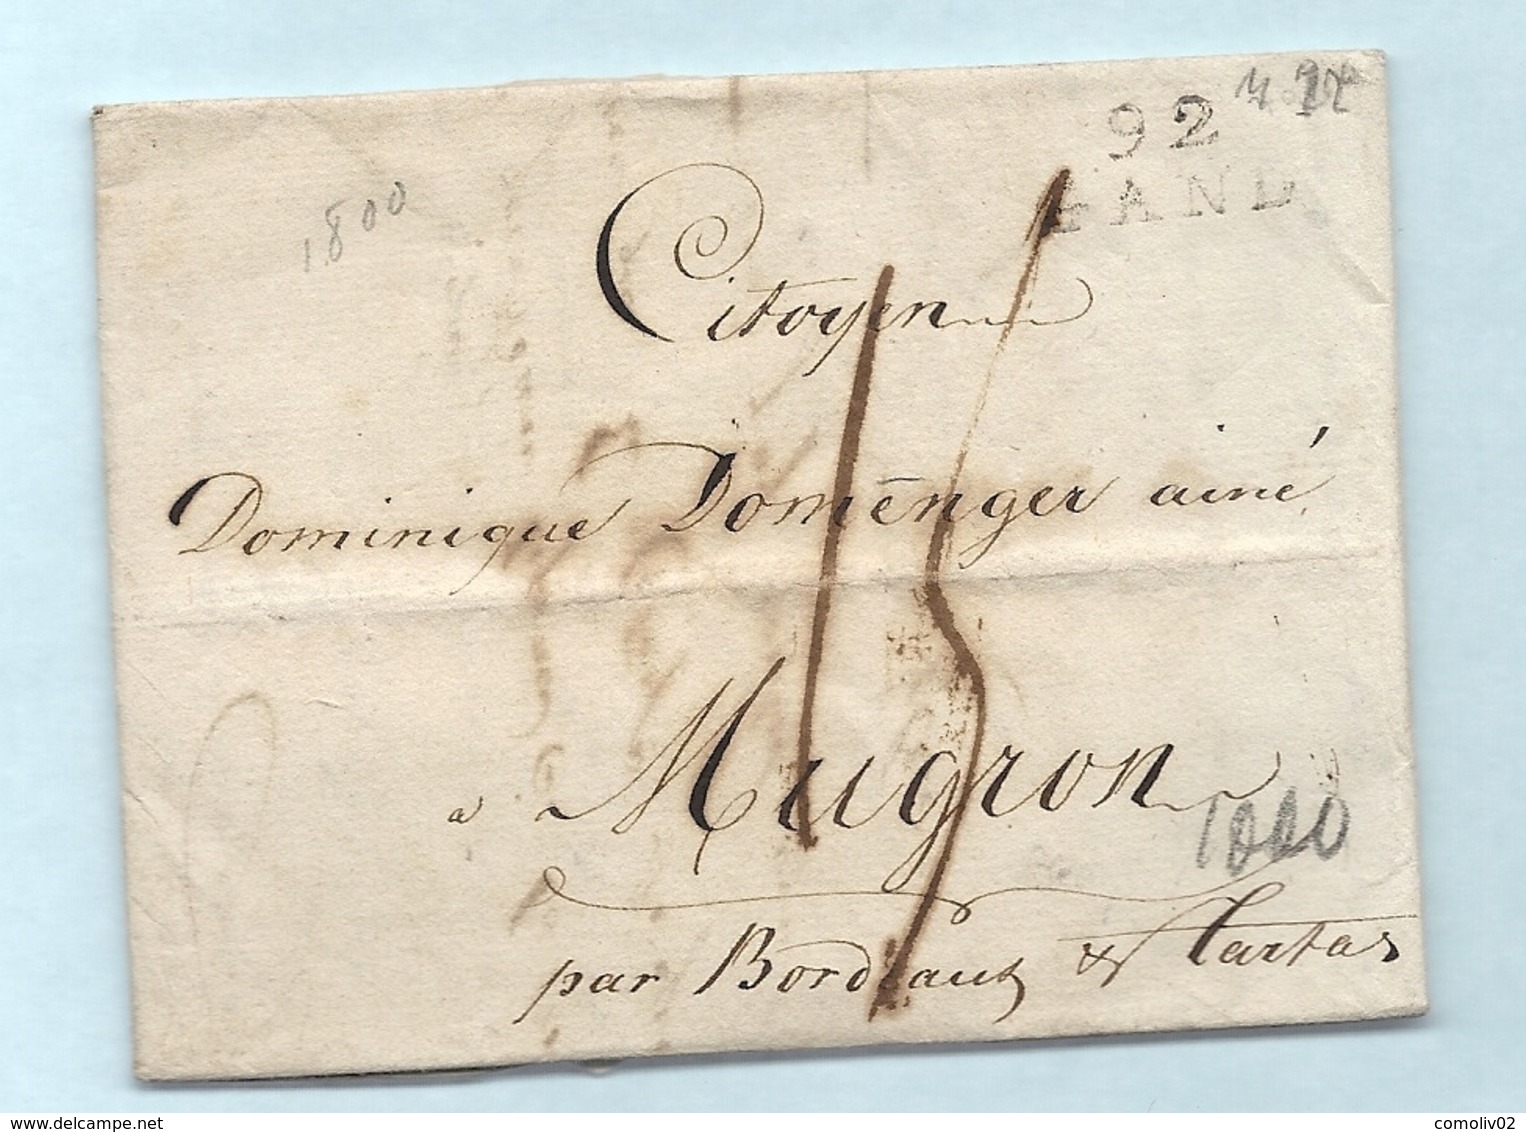 92
GAND
1800
Citoyen
Dominique Domenger ainé
a Mugron
15
1000
par Bordeaux & Tartas
delcampe.net
comoliv02